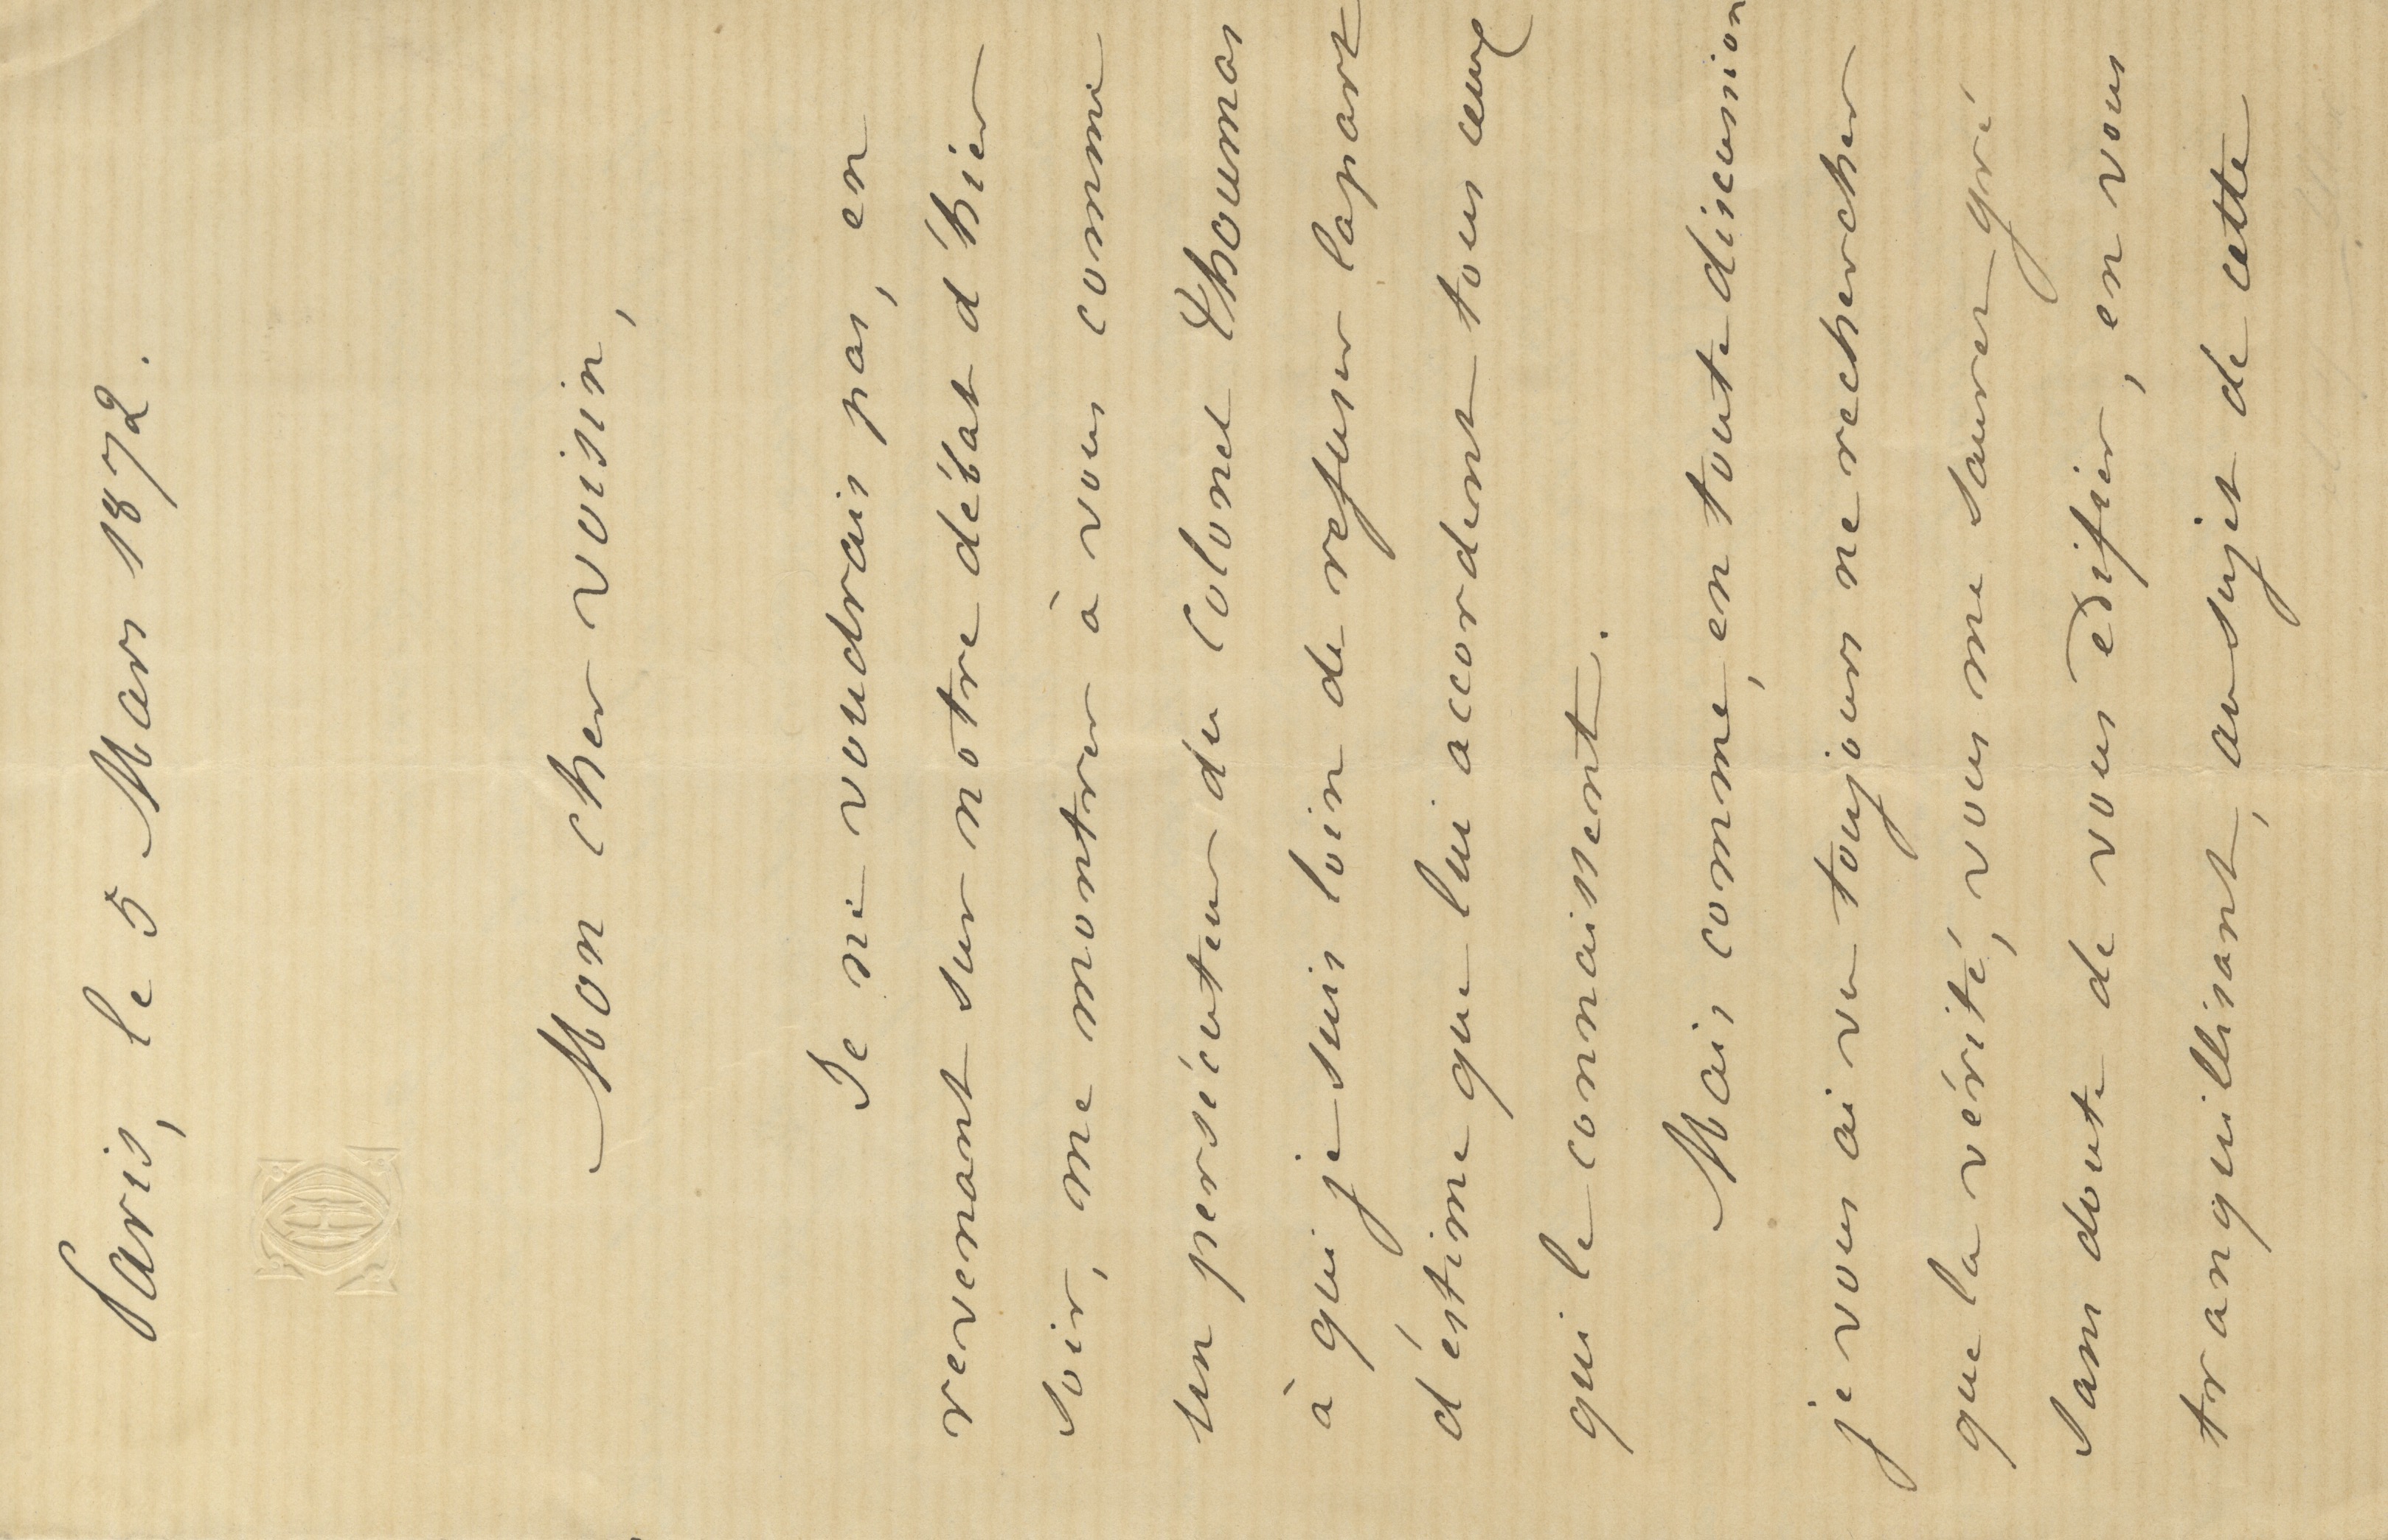 Paris, le 5 Mars 1872.
Mon cher voisin,
Je ne voudrais pas, en
revenant sur notre débat d'hier
soir, me montrer à vous comme
un persécuteur du Colonel Thoumas
à qui je suis loin de refuser la part
d'éstime que lui accordent tous ceux
qui le connaissent.
Mais comme, en toute discussion
je vous ai vu toujours ne rechercher
que la vérité, vous me saurez gré
sans doute de vous édifier, en vous
tranquillisant, au sujet de cette